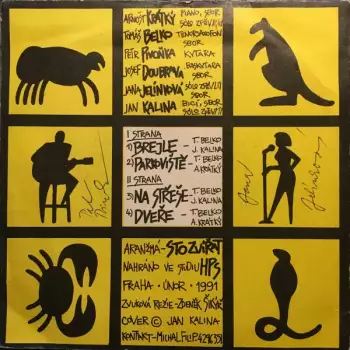 ARNOŠT KRÁTKÝ PIANO, SBOR
TOMÁŠ BELKO TENORSAXOFON
SBOR
PETR PIVOŇKA KYTARA
JOSEF DOUBRAVA BASKYTARA
SBOR
JANA JELÍNKOVÁ
JAN KALINA BICÍ, SBOR
I STRANA
1) BREJLE - T. BELKO
J. KALINA
2) PARKOVIŠTĚ - T. BELKO
A. KRÁTKÝ
II STRANA
3) NA STŘEŠE - T. BELKO
J. KALINA
4) DVEŘE - T. BELKO
A. KRÁTKÝ
ARANŽMÁ - STO ZVÍŘAT
NAHRÁNO VE STUDIU HPS
PRAHA · ÚNOR · 1991
ZVUKOVÁ REŽIE - ZDENĚK ŠIKÝŘ
COVER © JAN KALINA
KONTAKT - MICHAL